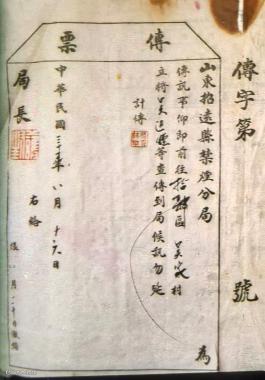 傳字第 號
傳票
山東招遠縣禁煙分局 為
傳訊事仰即前往 區 吴家村
立將吴 等查傳到局候訊勿延
計傳
中華民國三十 年八月十六日
局長
右給